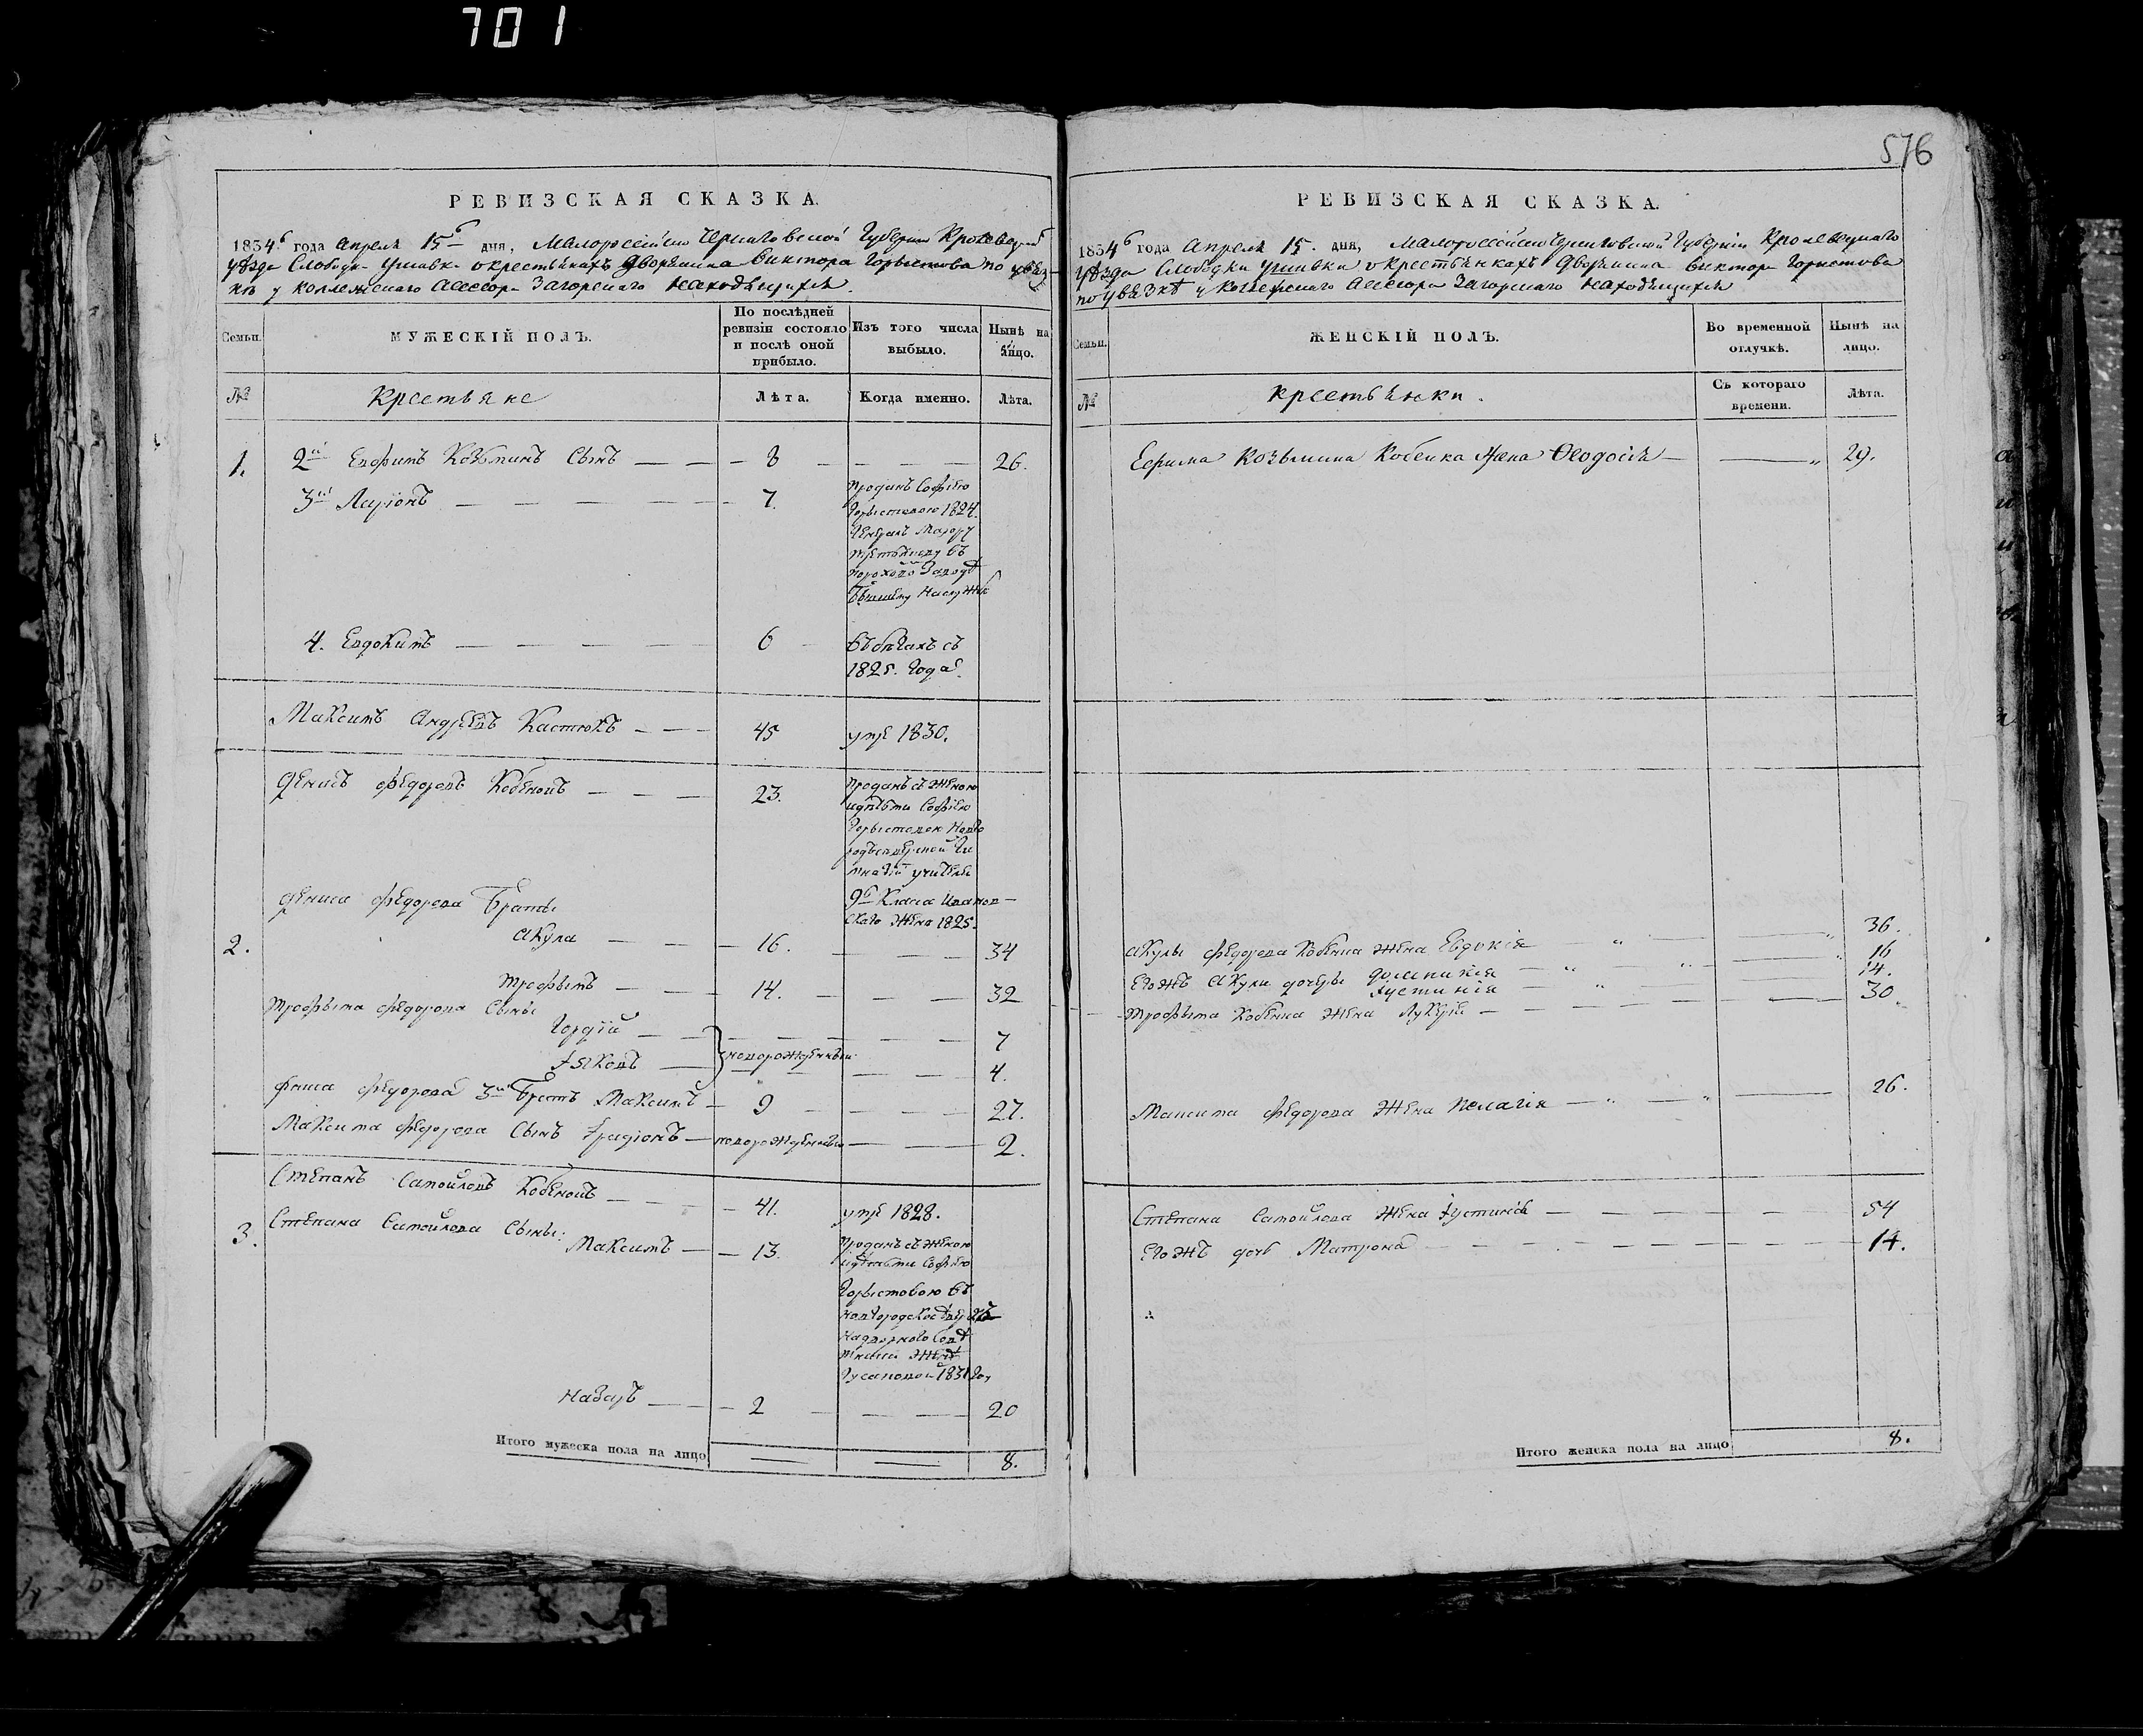 701
576
РЕВИЗСКАЯ СКАЗКА.
1834 года Апреля 15 дня, Малороссійской Черниговской Губерніи Кролевецкаго
уѣзда Слободки окрестьянахъ Дворянина Виктора Горыстова по увяз-
кѣ у Коллежскаго Асессора Загорскаго Находящихся.
Семьи.
МУЖЕСКІЙ ПОЛЪ.
По послѣдней ревизіи состояло и послѣ оной прибыло.
Изъ того числа выбыло.
Нынѣ на лицо.
№
Крестьяне
Лѣта.
Когда именно.
Лѣта.
1. 2й Евфимъ Козьминъ Сынъ — — 8 — — — 26.
3й Ларіонъ — — — 7. Проданъ Софіею
Горыстовою 1824.
Генералъ Маіору
въ
Заводѣ
4. Евдокимъ — — — 6 Въ бѣгахъ съ
1825. Года
Максимъ Андреевъ Костюкъ — — 45 умре 1830.
Денисъ Федоровъ Кобенокъ — — — 23. Проданъ съ женою
идѣтьми Софіею
Горыстовою Новго
родъсѣверской Ги
мназіи учителя
9го Класа Иванов—
скаго Жене 1825.
Дениса Федорова Браты
2. Акула — — 16. — — — 34
Трофымъ — — 14. — — — 32
Трофыма Федорова Сыны
Гордій — — — — 7
Яковъ — новорожденный — — 4.
Дениса Федорова 3й Братъ Максимъ — 9 — — — 27.
Максима Федорова Сынъ Ираціонъ — новорожденный — — 2.
Степанъ Самойловъ Кобенокъ — — 41. умре 1828.
3. Степана Самойлова Сыны:
Максимъ — — 13. Проданъ съ женою
идѣтьми Софіею
Горыстовою въ
Надворного Совѣ
тника Женѣ
Гусаковой 1831 Го,
Назаръ — — 2 — — — 20
Итого мужеска пола на лицо 8.
РЕВИЗСКАЯ СКАЗКА.
1834 года Апреля 15. дня, Малороссійской Черниговской Губерніи Кролевецкаго
уѣзда Слободки окрестьянкахъ Дворянина Виктора Гористова
по увязкѣ у Колежскаго Асессора Загорскаго Находящихся
Семьи.
ЖЕНСКІЙ ПОЛЪ.
Во временной отлучкѣ.
Нынѣ на лицо.
№
крестьянки.
Съ котораго времени.
Лѣта.
Ефима Козьмина Кобенка Жена Ѳеодосія — — 29.
Акулы Федорова Кобенка жена Евдокія 36.
Егожъ Акулы дочеры Домникія — 16
Іустинія — 14.
Трофыма Кобенка Жена Лукерія — — 30.
Максима Федорова Жена Пелагія — — 26.
Степана Самойлова Жена Іустинія — — 54
Егожъ дочь Матрона — — 14.
Итого женска пола на лицо 8.